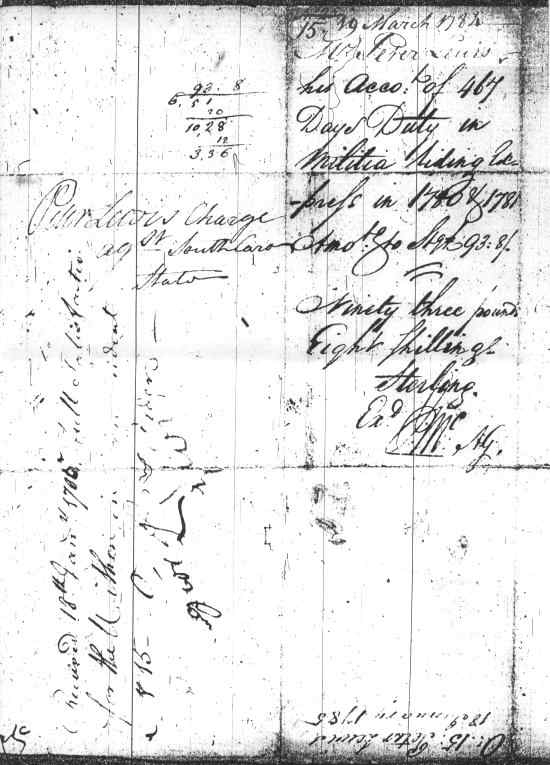 29 March 1784
Mr. Peter Lewis
his Acco:t of 467
Days Duty in
Militia Riding Ex-
-press in 1780 & 1781
Amo:tg to Stg£ 93:8/.
Ninety three pound
Eight Shillings
Sterling.
Exd. JMc
AG.
93. 8
6. 51
20
10,28
12
3.36
Peter Lewis Charge
agst South Caro
State
Received 18th Jany 1785 full Satisfactio
for the Within in an indent
Peter Lewis
O: 15. Peter Lewis
18 January 1785